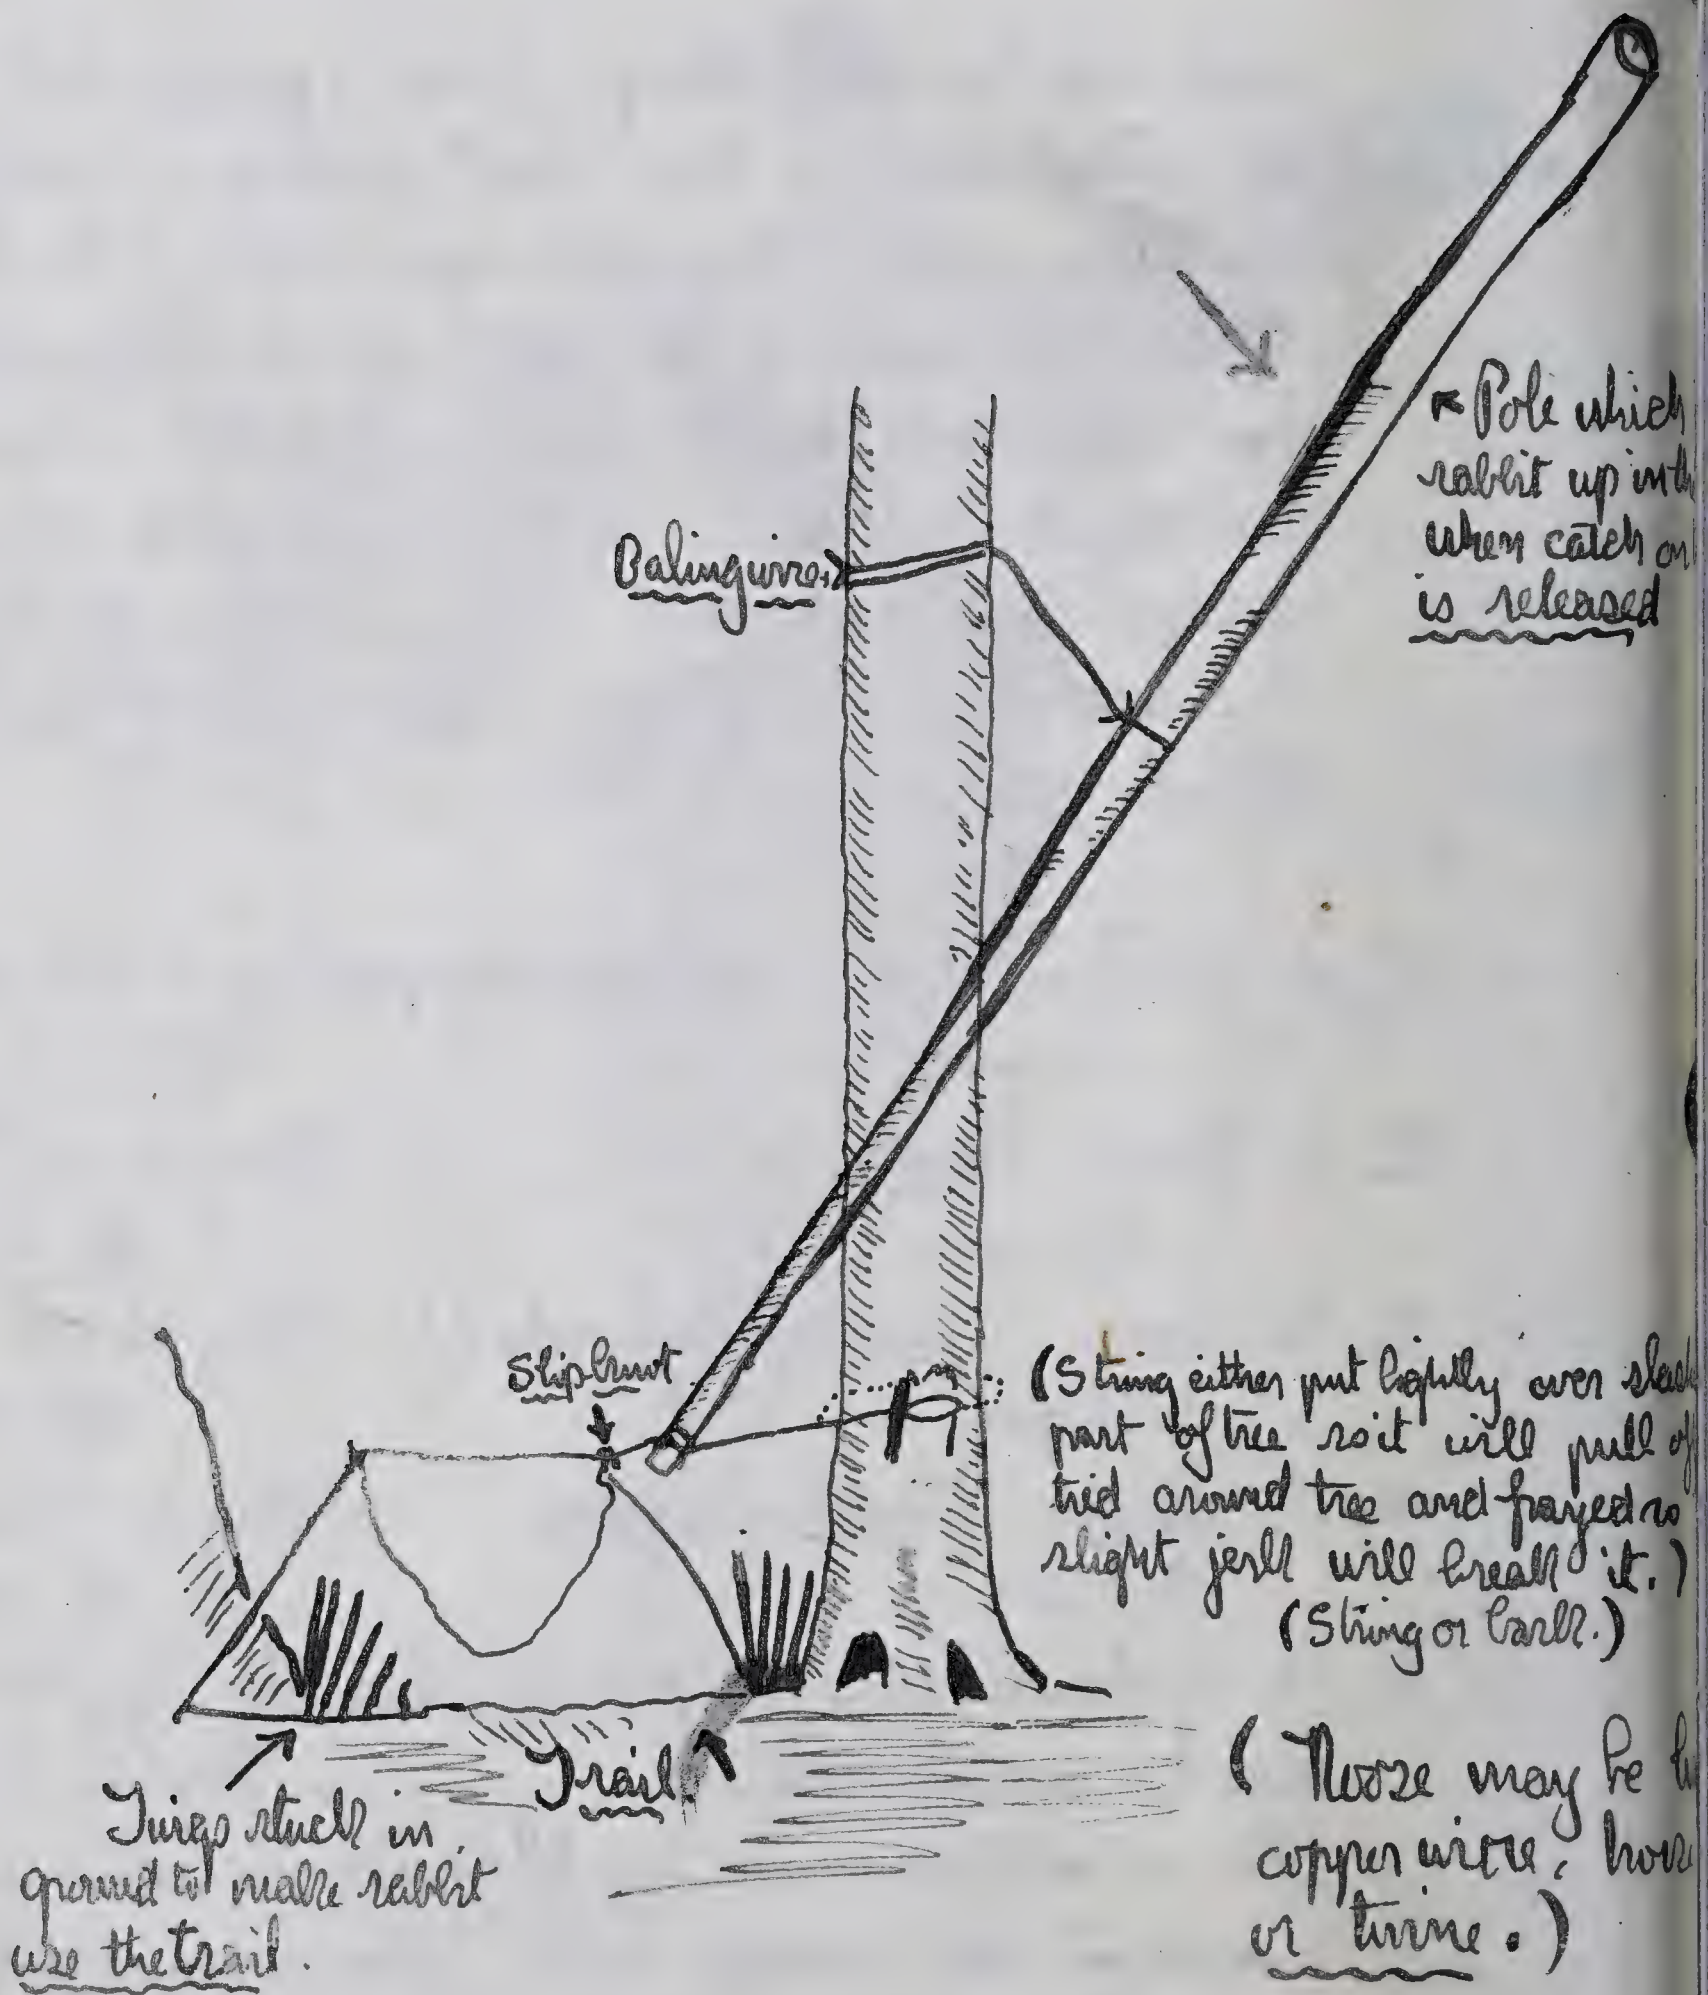 Balingwire
Pole which
rabbit up in th
when catch on
is released
Slip knot
(String either put lightly over slash
part of tree so it will pull of
tied around tree and frayed so
slight jerk will break it.)
(String or bark.)
Trail
Twigs stuck in
ground to make rabbit
use the trail.
( Nooze may be
copper wire, hors
or twine.)